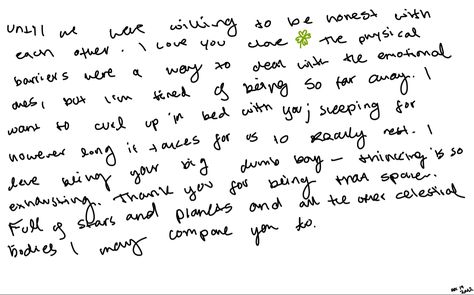 until we were willing to be honest with
each other. I love you clove 🍀 the physical
barriers were a way to deal with the emotional
ones, but I'm tired of being so far away. I
want to curl up in bed with you; sleeping for
however long it takes for us to really rest. I
love being your big dumb boy – thinking is so
exhausting. Thank you for being that space.
Full of stars and planets and all the other celestial
bodies I may compare you to.